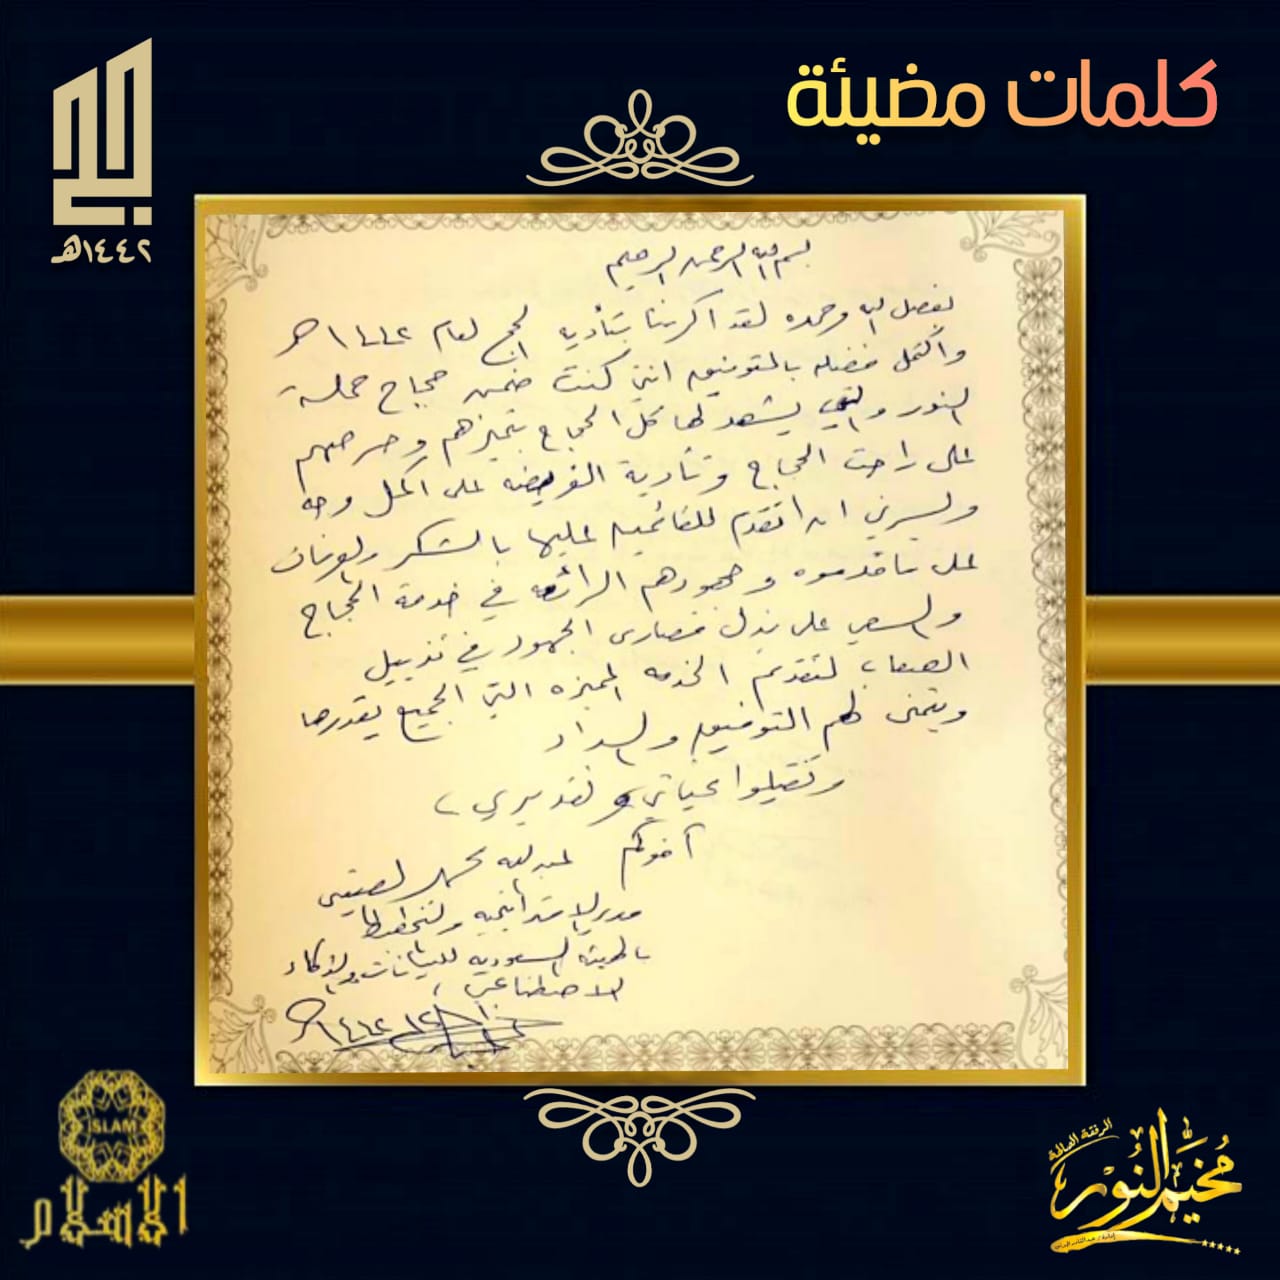 كلمات مضيئة
١٤٤٢هـ
بسم الله الرحمن الرحيم
بفضل الله وحمده لقد اكرمنا بتأدية الحج لعام ١٤٤٢هـ
واكتمل فضله بالتوفيق انني كنت ضمن حجاج حملة
النور والتي يشهد لها كل الحجاج بتميزهم وحرصهم
على راحت الحجاج وتأدية الفريضه على اكمل وجه
ويسرني ان اتقدم للقائمين عليها بالشكر والعرفان
على ماقدموه وجهودهم الرائعه في خدمة الحجاج
والسعي على بذل قصارى الجهود في تذليل
الصعاب لتقديم الخدمه المميزه التي الجميع يقدرها
ويتمنى لهم التوفيق والسداد
وتقبلوا تحياتي وتقديري،
اخوكم عبدالله محمد
مدير الاستراتيجيه والتخطيط
بالهيئه السعوديه للبيانات والذكاء
الاصطناعي،
١٤٤٢هـ
ISLAM
الاسلام
الرفقة الصالحة
مخيم النور